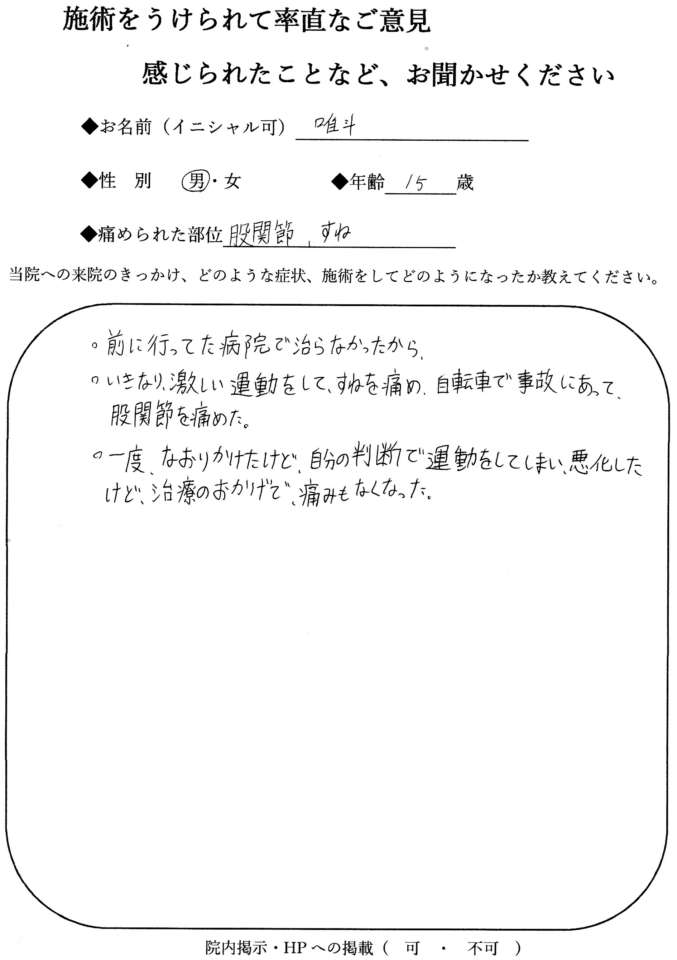 施術をうけられて率直なご意見
感じられたことなど、お聞かせください
◆お名前（イニシャル可） 唯斗
◆性　別　男・女　◆年齢 15 歳
◆痛められた部位 股関節、すね
当院への来院のきっかけ、どのような症状、施術をしてどのようになったか教えてください。
。前に行ってた病院で治らなかったから、
。いきなり、激しい運動をして、すねを痛め、自転車で事故にあって、
股関節を痛めた。
。一度、なおりかけたけど、自分の判断で運動をしてしまい、悪化した
けど、治療のおかげで、痛みもなくなった。
院内掲示・HPへの掲載（　可　・　不可　）